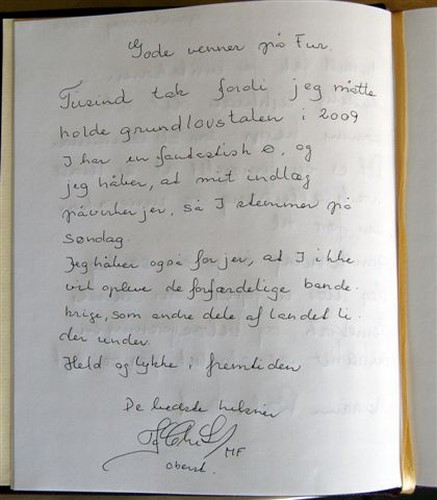 Gode venner på Fur.
Tusind tak fordi jeg måtte
holde grundlovstalen i 2009
I har en fantastisk ø, og
jeg håber, at mit indlæg
påvirker jer, så I stemmer på
søndag.
Jeg håber også for jer, at I ikke
vil opleve de forfærdelige bande-
krige, som andre dele af landet li-
der under.
Held og lykke i fremtiden
De bedste hilsner
MF
oberst.